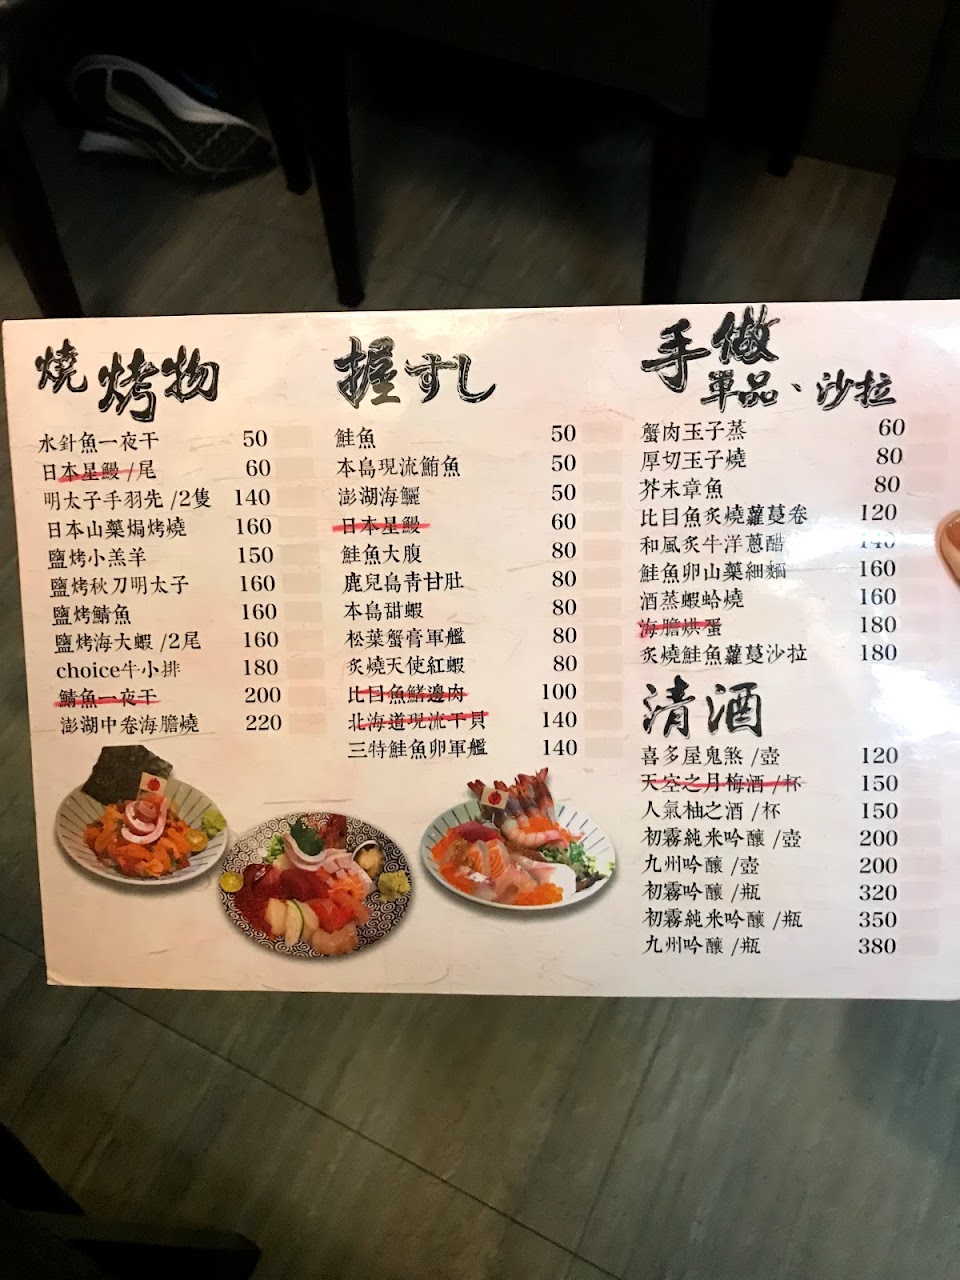 燒烤物
水針魚一夜干 50
日本星鰻 /尾 60
明太子手羽先 /2隻 140
日本山藥焗烤燒 160
鹽烤小羔羊 150
鹽烤秋刀明太子 160
鹽烤鯖魚 160
鹽烤海大蝦 /2尾 160
choice牛小排 180
鯖魚一夜干 200
澎湖中卷海膽燒 220
握すし
鮭魚 50
本島現流鮪魚 50
澎湖海鱺 50
日本星鰻 60
鮭魚大腹 80
鹿兒島青甘肚 80
本島甜蝦 80
松葉蟹膏軍艦 80
炙燒天使紅蝦 80
比目魚鰭邊肉 100
北海道現流干貝 140
三特鮭魚卵軍艦 140
手做
單品、沙拉
蟹肉玉子蒸 60
厚切玉子燒 80
芥末章魚 80
比目魚炙燒蘿蔓卷 120
和風炙牛洋蔥醋 140
鮭魚卵山藥細麵 160
酒蒸蝦蛤燒 160
海膽烘蛋 180
炙燒鮭魚蘿蔓沙拉 180
清酒
喜多屋鬼煞 /壺 120
天空之月梅酒 /杯 150
人氣柚之酒 /杯 150
初霧純米吟釀 /壺 200
九州吟釀 /壺 200
初霧吟釀 /瓶 320
初霧純米吟釀 /瓶 350
九州吟釀 /瓶 380